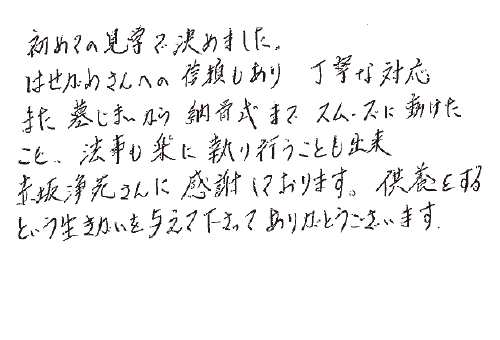 初めての見学で決めました。
はせがわさんへの信頼もあり 丁寧な対応
また 墓じまいから 納骨式まで スムーズに動けた
こと、法事も楽に執り行うことも出来
赤坂浄苑さんに感謝しております。供養をする
という生きがいを与えて下さってありがとうございます.